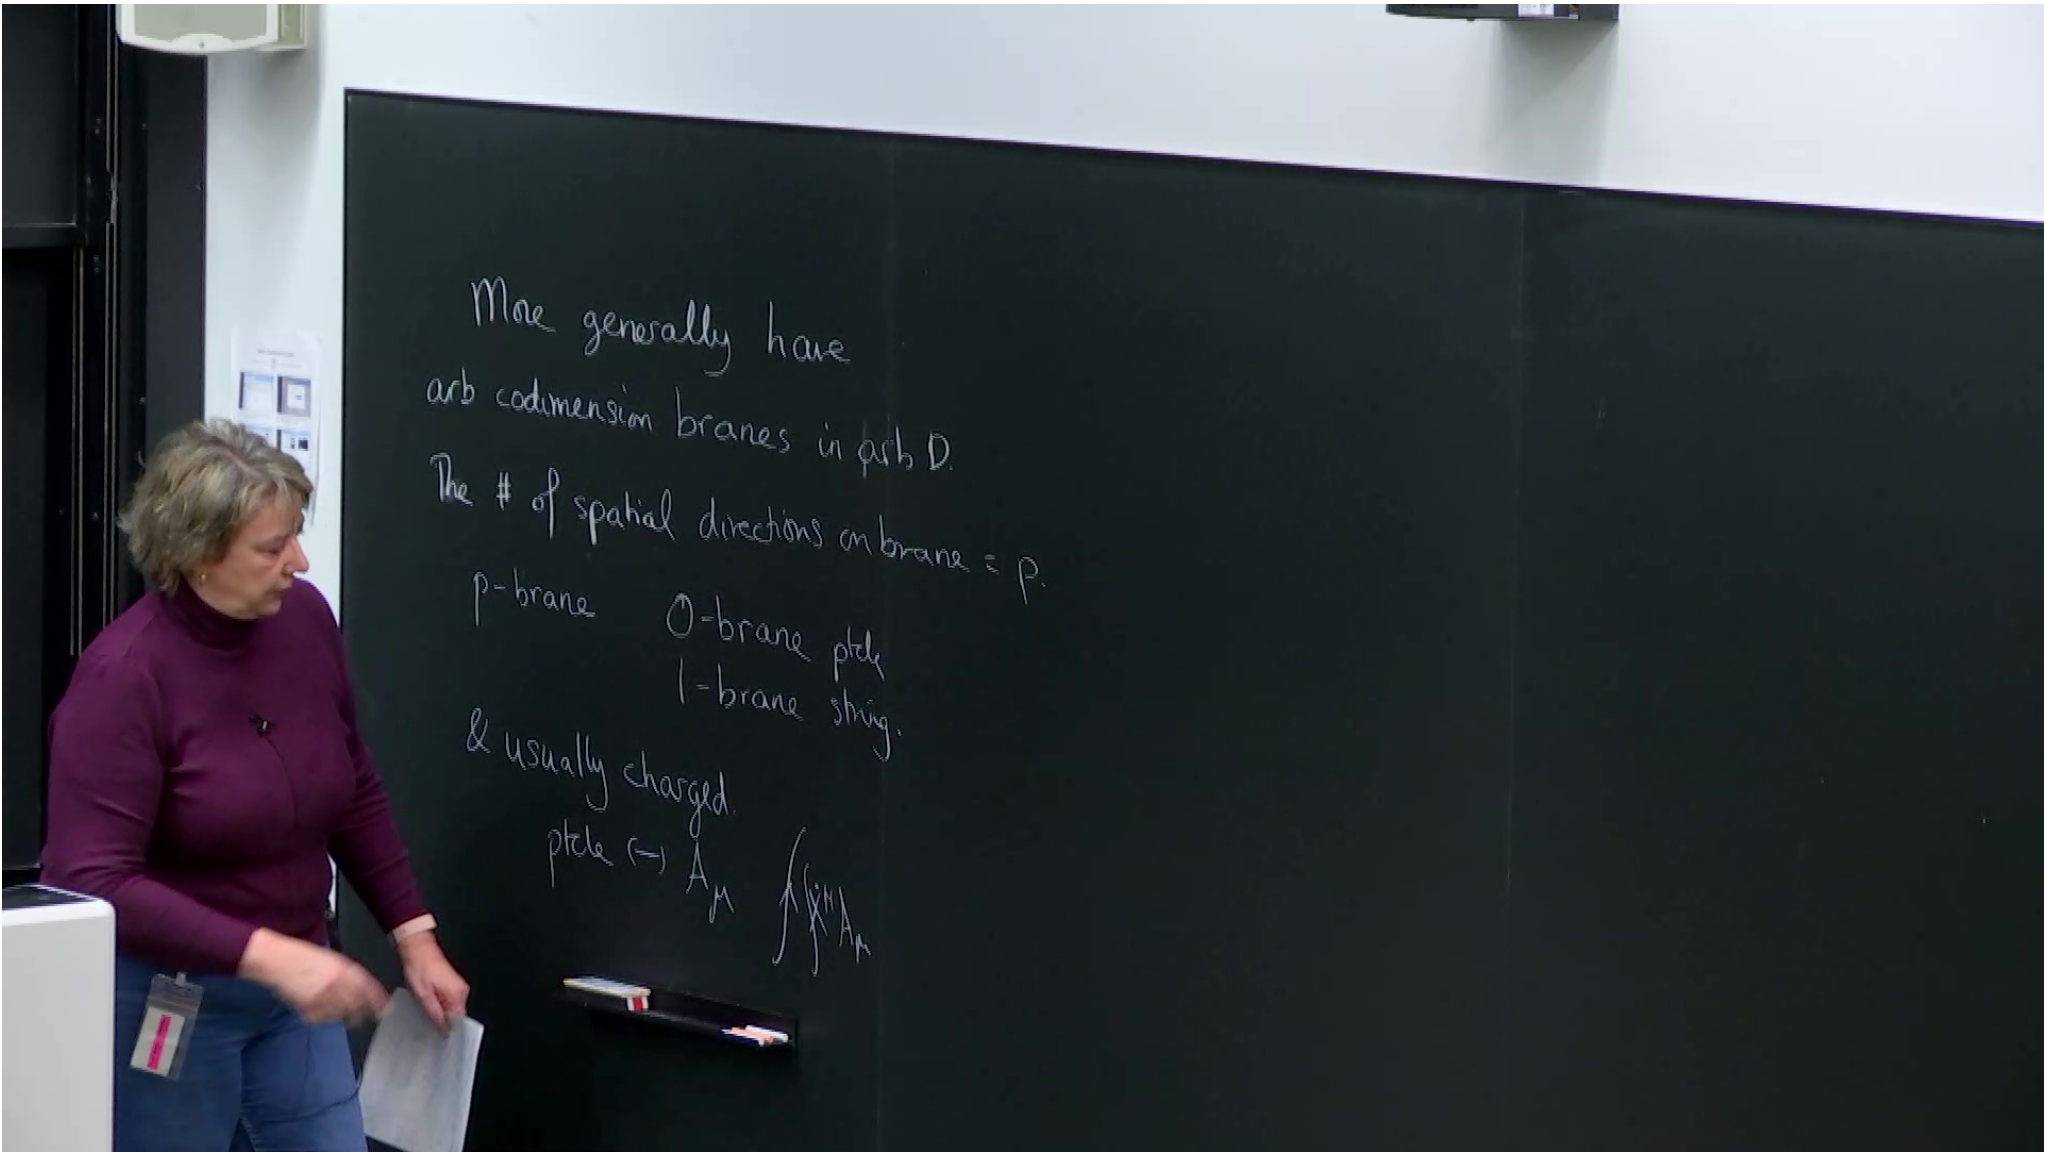 More generally have
arb codimension branes in arb D.
The # of spatial directions on brane = p.
p-brane 0-brane ptcle
1-brane string.
& usually charged.
ptcle (–) Aμ ∫ẋ^μ A_μ